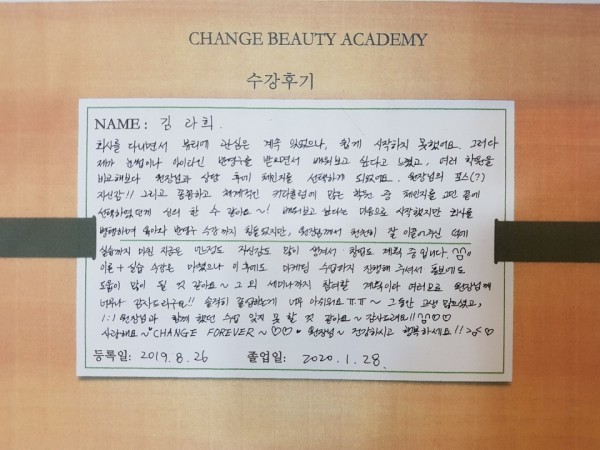 CHANGE BEAUTY ACADEMY
수강후기
NAME : 김 라희.
회사를 다니면서 뷰티에 관심은 계속 있었으나, 쉽게 시작하지 못했어요. 그러다
제가 눈썹이나 아이라인 반영구를 받으면서 배워보고 싶다고 느꼈고, 여러 학원을
비교해보다 원장님과 상담 후에 체인지를 선택하게 되었어요. 원장님의 포스(?)
자신감!! 그리고 꼼꼼하고 체계적인 커리큘럼에 많은 학원 중 체인지를 고민 끝에
선택하였던게 신의 한 수 같아요~! 배워보고 싶다는 마음으로 시작했지만 회사를
병행하며 반영구 수강까지 힘들었지만, 원장님께서 천천히 잘 이끌어주신 덕에
실습까지 마친 지금은 만족도도 자신감도 많이 생겨서 창업도 계획 중입니다. ^^
이론 + 실습 수강은 마쳤으나 이후에도 마케팅 수업까지 진행해 주셔서 홍보에도
도움이 많이 될 것 같아요~ 그 외 세미나까지 참여할 계획이라 여러모로 원장님께
너무나 감사드리구요!! 솔직히 졸업하는게 너무 아쉬워요 ㅠㅠ~ 그동안 고생 많으셨고,
1:1 원장님과 함께 했던 수업 잊지 못 할 것 같아요~ 감사드려요!! ^^♡♡
사랑해요~ CHANGE FOREVER ~♡♡ 원장님~ 건강하시고 행복하세요!! >3< ♡
등록일: 2019. 8. 26 졸업일: 2020. 1. 28.